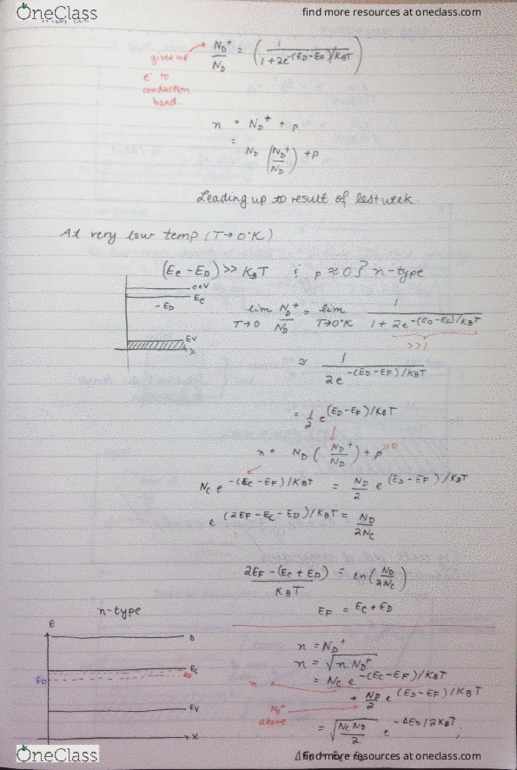 find more resources at oneclass.com
OneClass
gives up e⁻ to conduction band.
N_D⁺/N_D = (1/(1+2e^-(E_D-E_F)/K_BT))
n = N_D⁺ + p
= N_D (N_D⁺/N_D) + p
Leading up to result of last week.
At very low temp (T→0°K)
(E_C - E_D) >> K_BT ; p ≈ 0 } n-type
0 eV
E_C
-E_D
E_V
x
lim T→0 N_D⁺/N_D = lim T→0°K 1/(1+2e^-(E_D-E_F)/K_BT)
>>1
≈ 1/(2e^-(E_D-E_F)/K_BT)
= 1/2 e^(E_D-E_F)/K_BT
n = N_D (N_D⁺/N_D) + p→0
N_C e^-(E_C-E_F)/K_BT = N_D/2 e^(E_D-E_F)/K_BT
e^(2E_F-E_C-E_D)/K_BT = N_D/2N_C
(2E_F-(E_C+E_D))/K_BT = ln(N_D/2N_C)
E_F = E_C+E_D
n-type
E
0
E_C
E_F
E_D
E_V
x
n = N_D⁺
n = √(n N_D⁺)
n
= N_C e^-(E_C-E_F)/K_BT
* N_D/2 e^(E_D-E_F)/K_BT
N_D⁺ above
= √(N_C N_D/2) e^-ΔE_D/2K_BT ;
OneClass
find more resources at oneclass.com